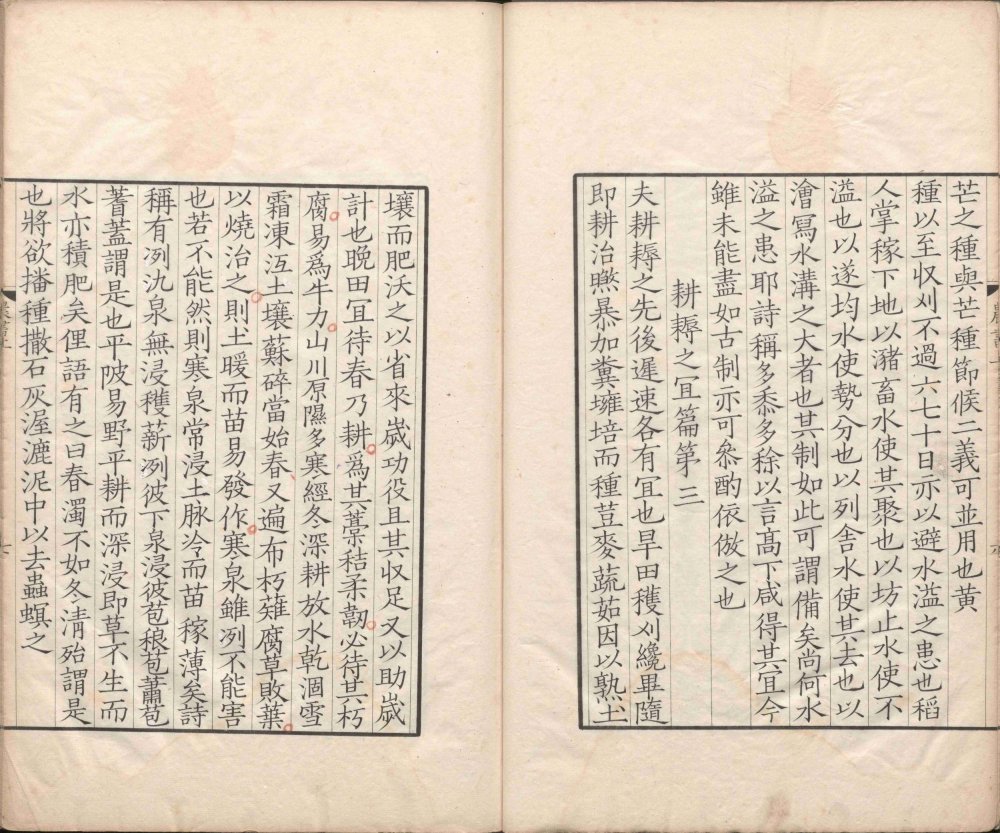 芒之種與芒種節候二義可並用也黃
種以至收刈不過六七十日亦以避水溢之患也稻
人掌稼下地以瀦畜水使其聚也以坊止水使不
溢也以遂均水使勢分也以列舍水使其去也以
澮寫水溝之大者也其制如此可謂備矣尚何水
溢之患耶詩稱多黍多稌以言髙下咸得其宜今
雖未能盡如古制亦可叅酌依倣之也
耕耨之宜篇第三
夫耕耨之先後遲速各有宜也旱田穫刈纔畢隨
即耕治㬠暴加糞壅培而種荳麥蔬茹因以熟土
壤而肥沃之以省來歲功役且其收足又以助歲
計也晚田宜待春乃耕爲其藁秸柔韌必待其朽
腐易爲牛力山川原隰多寒經冬深耕放水乾涸雪
霜凍沍土壤蘇碎當始春又遍布朽薙腐草敗葉
以燒治之則土暖而苗易發作寒泉雖冽不能害
也若不能然則寒泉常浸土脉冷而苗稼薄矣詩
稱有冽氿泉無浸穫薪冽彼下泉浸彼苞稂苞蕭苞
蓍蓋謂是也平陂易野平耕而深浸即草不生而
水亦積肥矣俚語有之曰春濁不如冬清殆謂是
也將欲播種撒石灰渥漉泥中以去蟲螟之